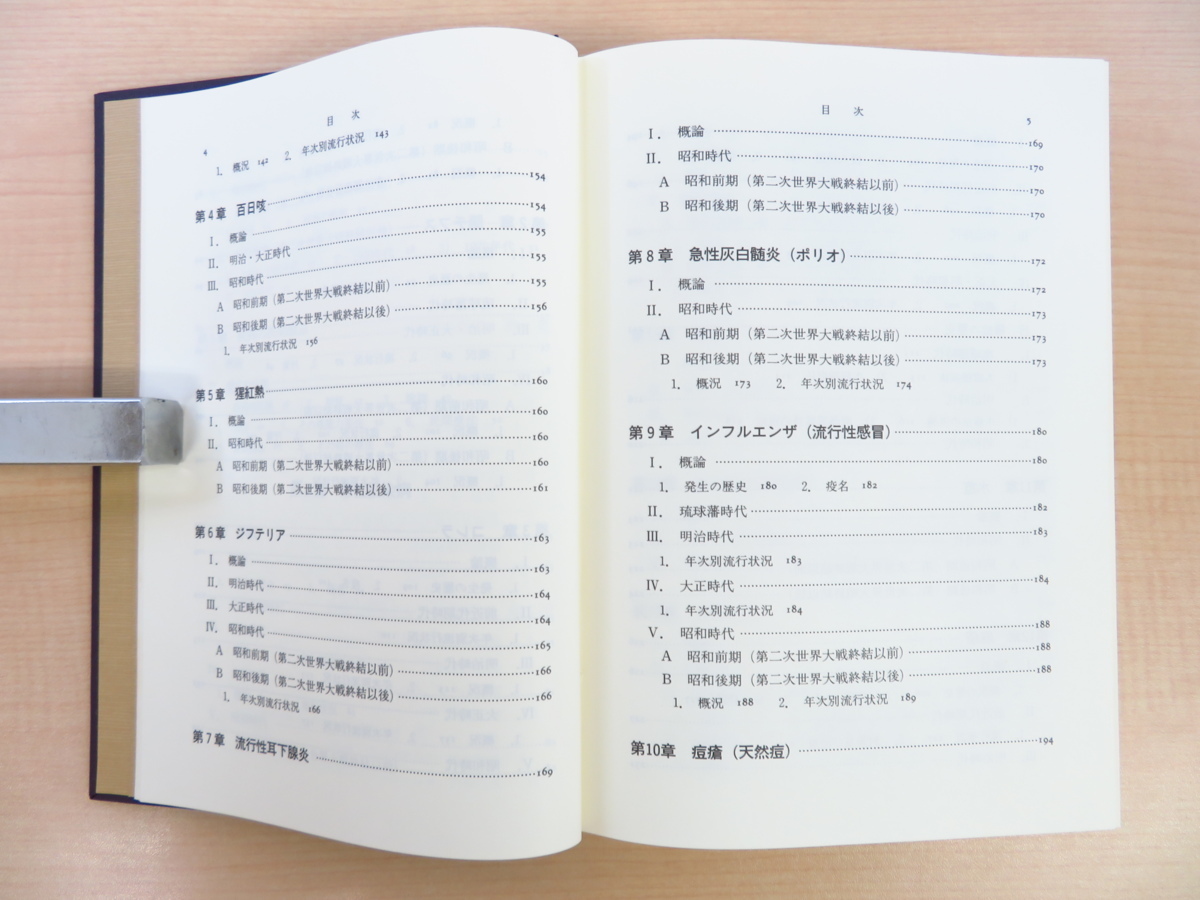 目次
4
1. 概況 142 2. 年次別流行状況 143
第4章 百日咳……154
I. 概論……154
II. 明治・大正時代……155
III. 昭和時代……155
A 昭和前期(第二次世界大戦終結以前)……155
B 昭和後期(第二次世界大戦終結以後)……156
1. 年次別流行状況 156
第5章 猩紅熱……160
I. 概論……160
II. 昭和時代……160
A 昭和前期(第二次世界大戦終結以前)……160
B 昭和後期(第二次世界大戦終結以後)……161
第6章 ジフテリア……163
I. 概論……163
II. 明治時代……164
III. 大正時代……164
IV. 昭和時代……165
A 昭和前期(第二次世界大戦終結以前)……166
B 昭和後期(第二次世界大戦終結以後)……166
1. 年次別流行状況 166
第7章 流行性耳下腺炎……169
目次
5
I. 概論……169
II. 昭和時代……170
A 昭和前期(第二次世界大戦終結以前)……170
B 昭和後期(第二次世界大戦終結以後)……170
第8章 急性灰白髄炎(ポリオ)……172
I. 概論……172
II. 昭和時代……173
A 昭和前期(第二次世界大戦終結以前)……173
B 昭和後期(第二次世界大戦終結以後)……173
1. 概況 173 2. 年次別流行状況 174
第9章 インフルエンザ(流行性感冒)……180
I. 概論……180
1. 発生の歴史 180 2. 疫名 182
II. 琉球藩時代……182
III. 明治時代……183
1. 年次別流行状況 183
IV. 大正時代……184
1. 年次別流行状況 184
V. 昭和時代……188
A 昭和前期(第二次世界大戦終結以前)……188
B 昭和後期(第二次世界大戦終結以後)……188
1. 概況 188 2. 年次別流行状況 189
第10章 痘瘡(天然痘)……194